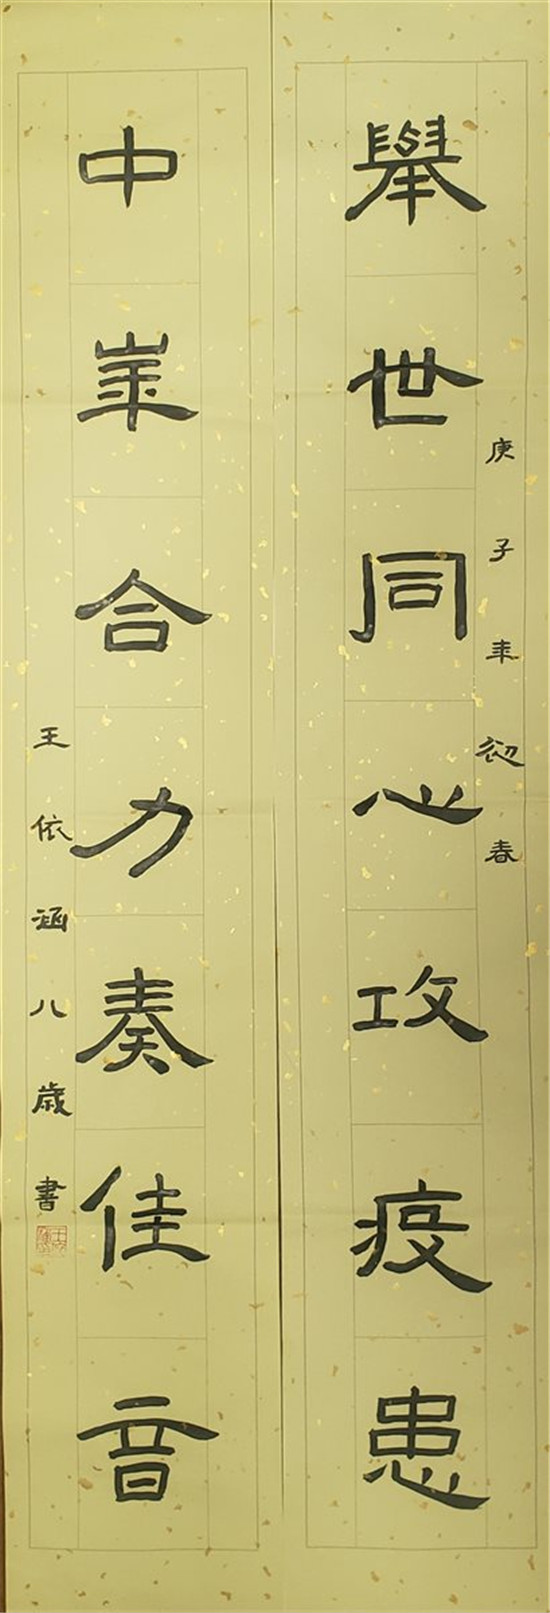 庚子年初春
舉世同心攻疫患
中崋合力奏佳音
王依涵八歲書